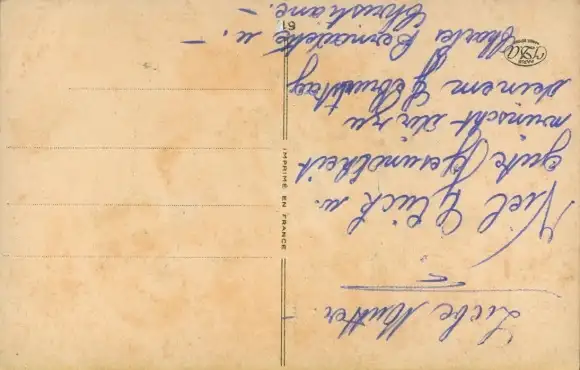 Liebe Mutter.
Viel Glück u.
gute Gesundheit
wünscht dir zu
deinem Geburtstag
Charles Bernadette u. –
Christiane. –
IMPRIMÉ EN FRANCE
61
PARIS